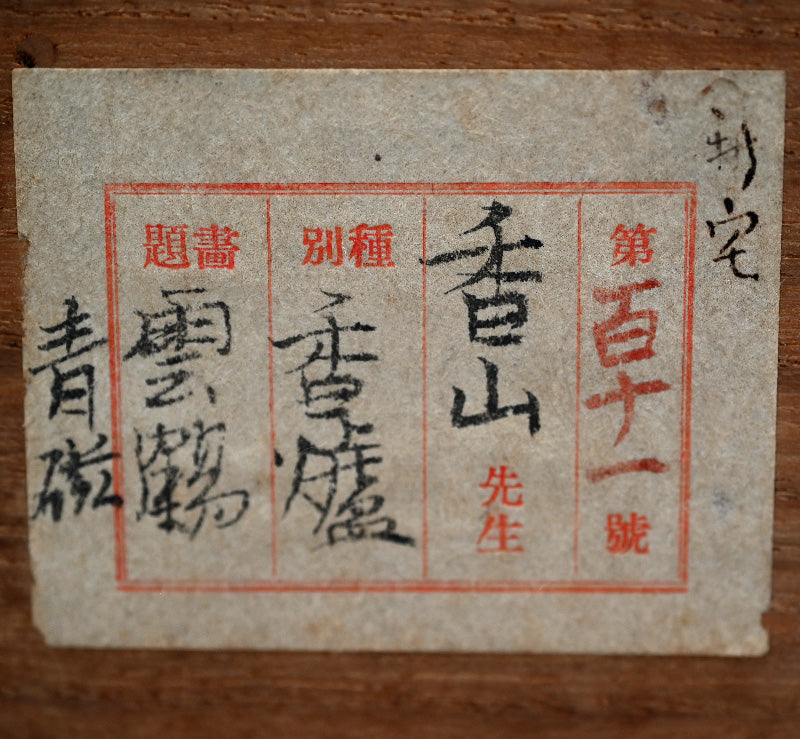 新宅
第百十一號
香山先生
種別香爐
畫題雲鶴
青磁